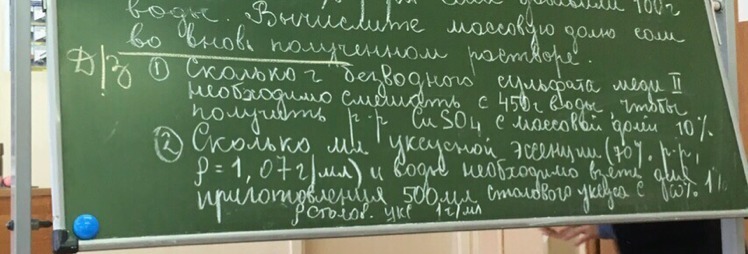 воды. Вычислите массовую долю соли
во вновь полученном растворе.
Д/З ① Сколько г безводного сульфата меди II
необходимо смешать с 450г воды, чтобы
получить р-р CuSO4 с массовой долей 10%.
② Сколько мл уксусной эссенции (70%. р-р,
ρ=1,07г/мл) и воды необходимо взять для
приготовления 500мл столового уксуса с
ρ столов. укс 1г/мл